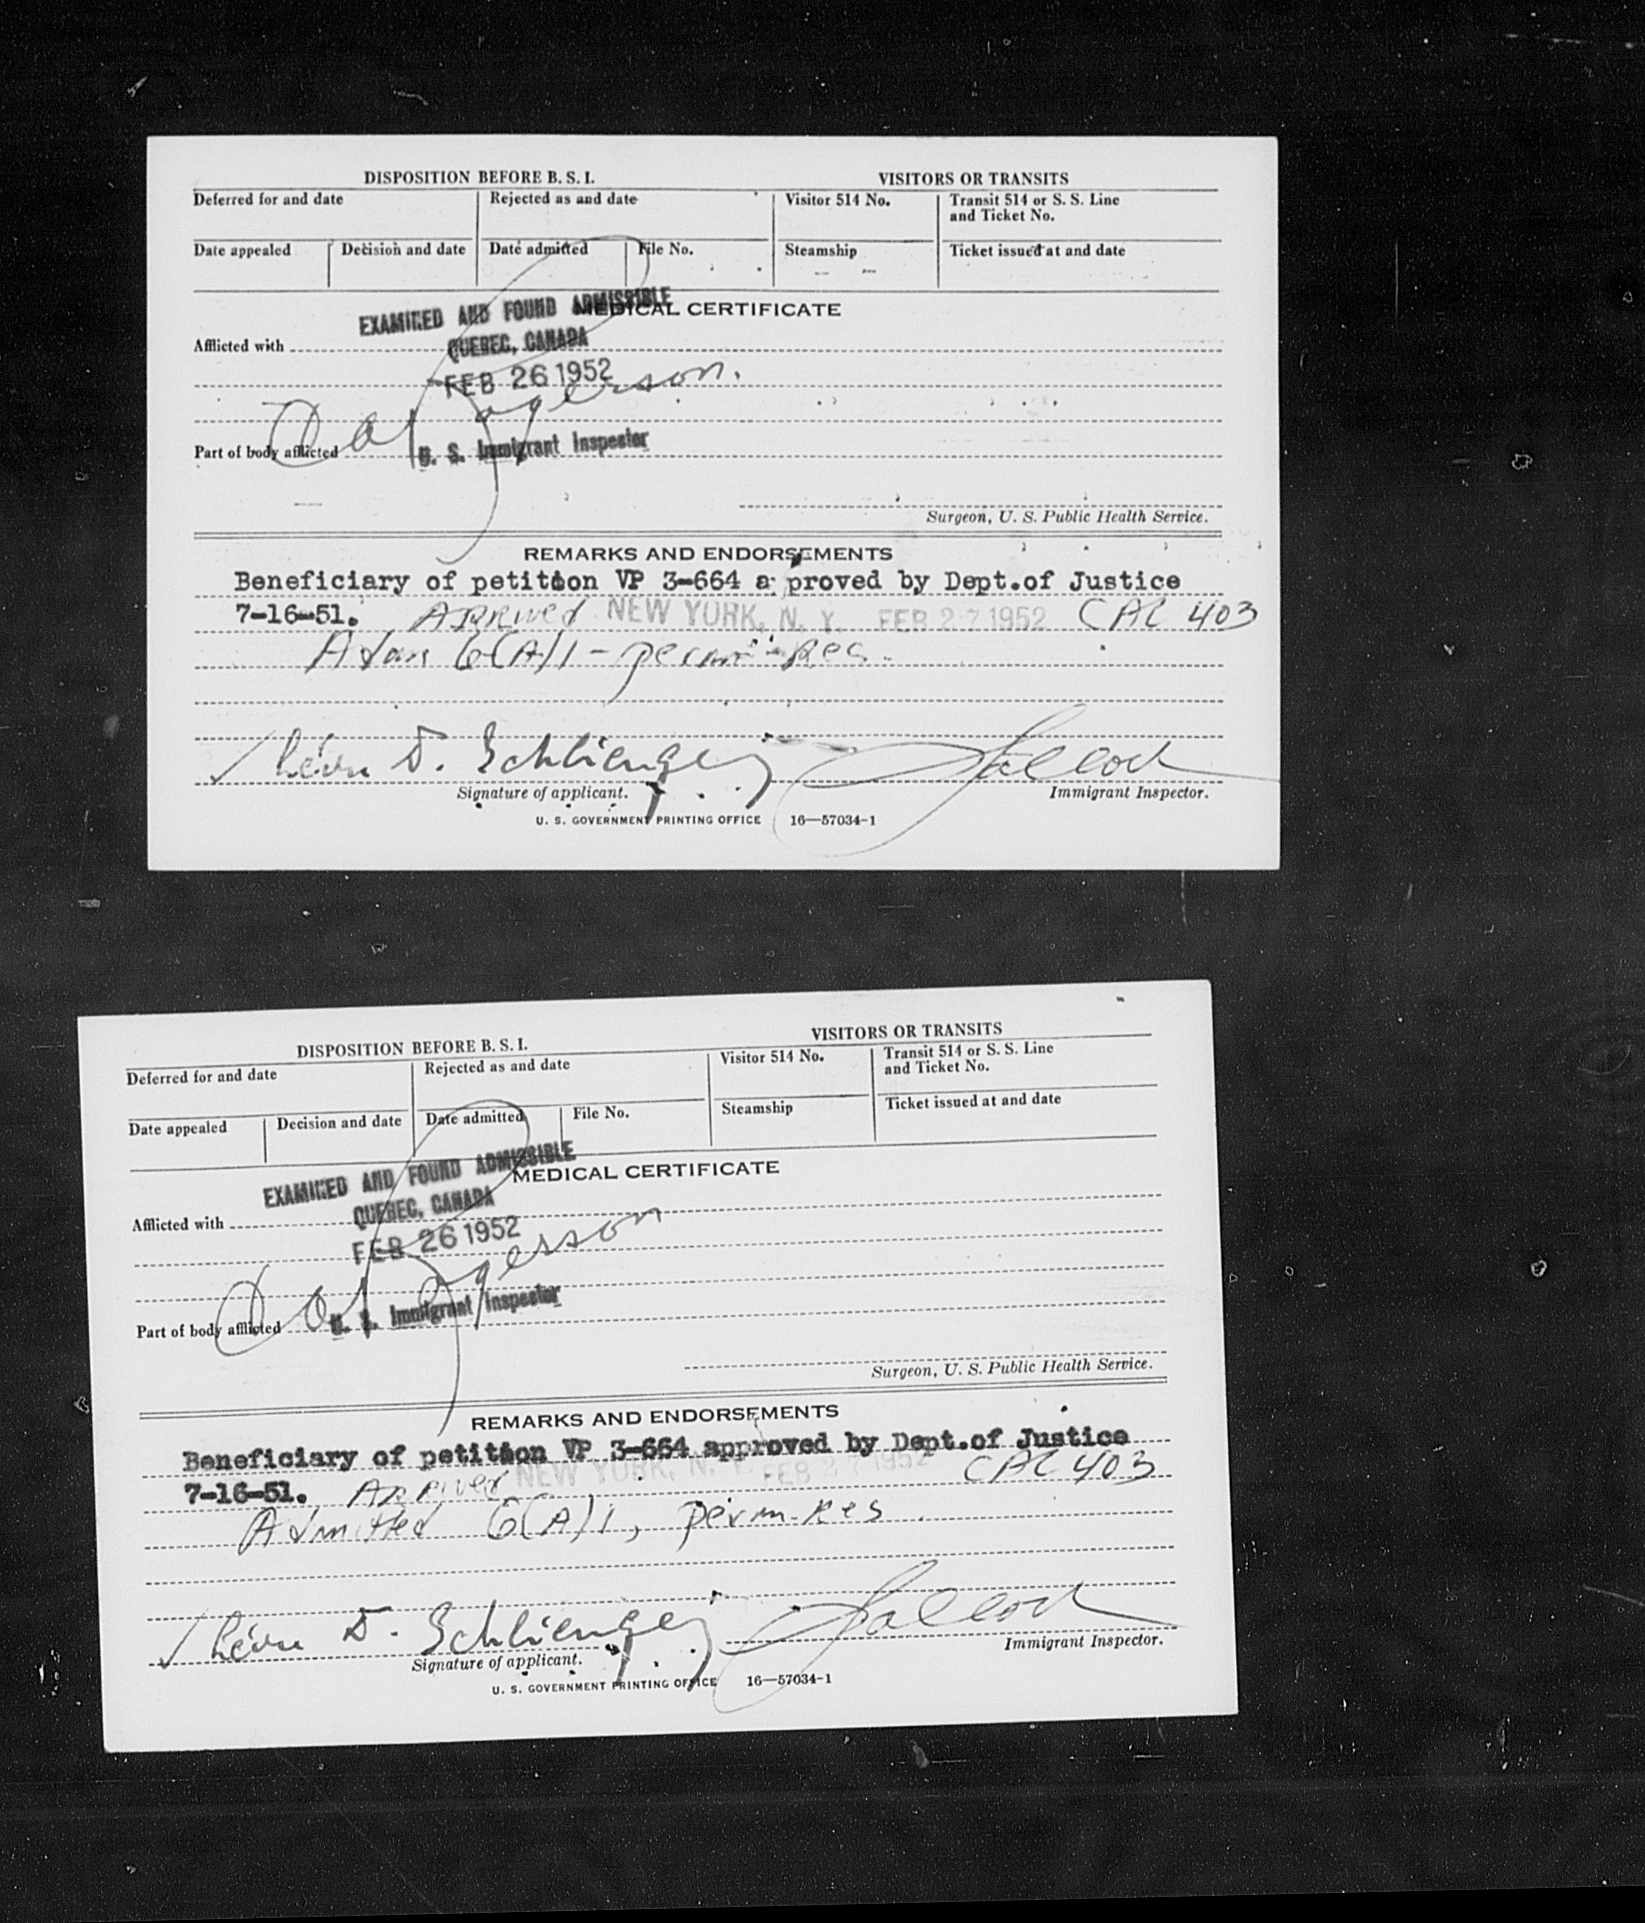 DISPOSITION BEFORE B. S. I.
VISITORS OR TRANSITS
Deferred for and date
Rejected as and date
Visitor 514 No.
Transit 514 or S. S. Line
and Ticket No.
Date appealed
Decision and date
Date admitted
File No.
Steamship
Ticket issued at and date
EXAMINED AND FOUND ADMISSIBLE
MEDICAL CERTIFICATE
Afflicted with
QUEBEC, CANADA
FEB 26 1952
Part of body afflicted
U. S. Immigrant Inspector
Surgeon, U. S. Public Health Service.
REMARKS AND ENDORSEMENTS
Beneficiary of petition VP 3-664 a proved by Dept.of Justice
7-16-51. Arrived NEW YORK, N. Y. FEB 27 1952 CAL 403
6(A)1 -
D. Schlienger
Signature of applicant.
Immigrant Inspector.
U. S. GOVERNMENT PRINTING OFFICE 16—57034-1
DISPOSITION BEFORE B. S. I.
VISITORS OR TRANSITS
Deferred for and date
Rejected as and date
Visitor 514 No.
Transit 514 or S. S. Line
and Ticket No.
Date appealed
Decision and date
Date admitted
File No.
Steamship
Ticket issued at and date
EXAMINED AND FOUND ADMISSIBLE
MEDICAL CERTIFICATE
Afflicted with
QUEBEC, CANADA
FEB 26 1952
Part of body afflicted
U. S. Immigrant Inspector
Surgeon, U. S. Public Health Service.
REMARKS AND ENDORSEMENTS
Beneficiary of petition VP 3-664 approved by Dept.of Justice
7-16-51. Arrived NEW YORK, N. Y. FEB 27 1952 CAL 403
Admitted 6(A)1, perm. res
D. Schlienger
Signature of applicant.
Immigrant Inspector.
U. S. GOVERNMENT PRINTING OFFICE 16—57034-1